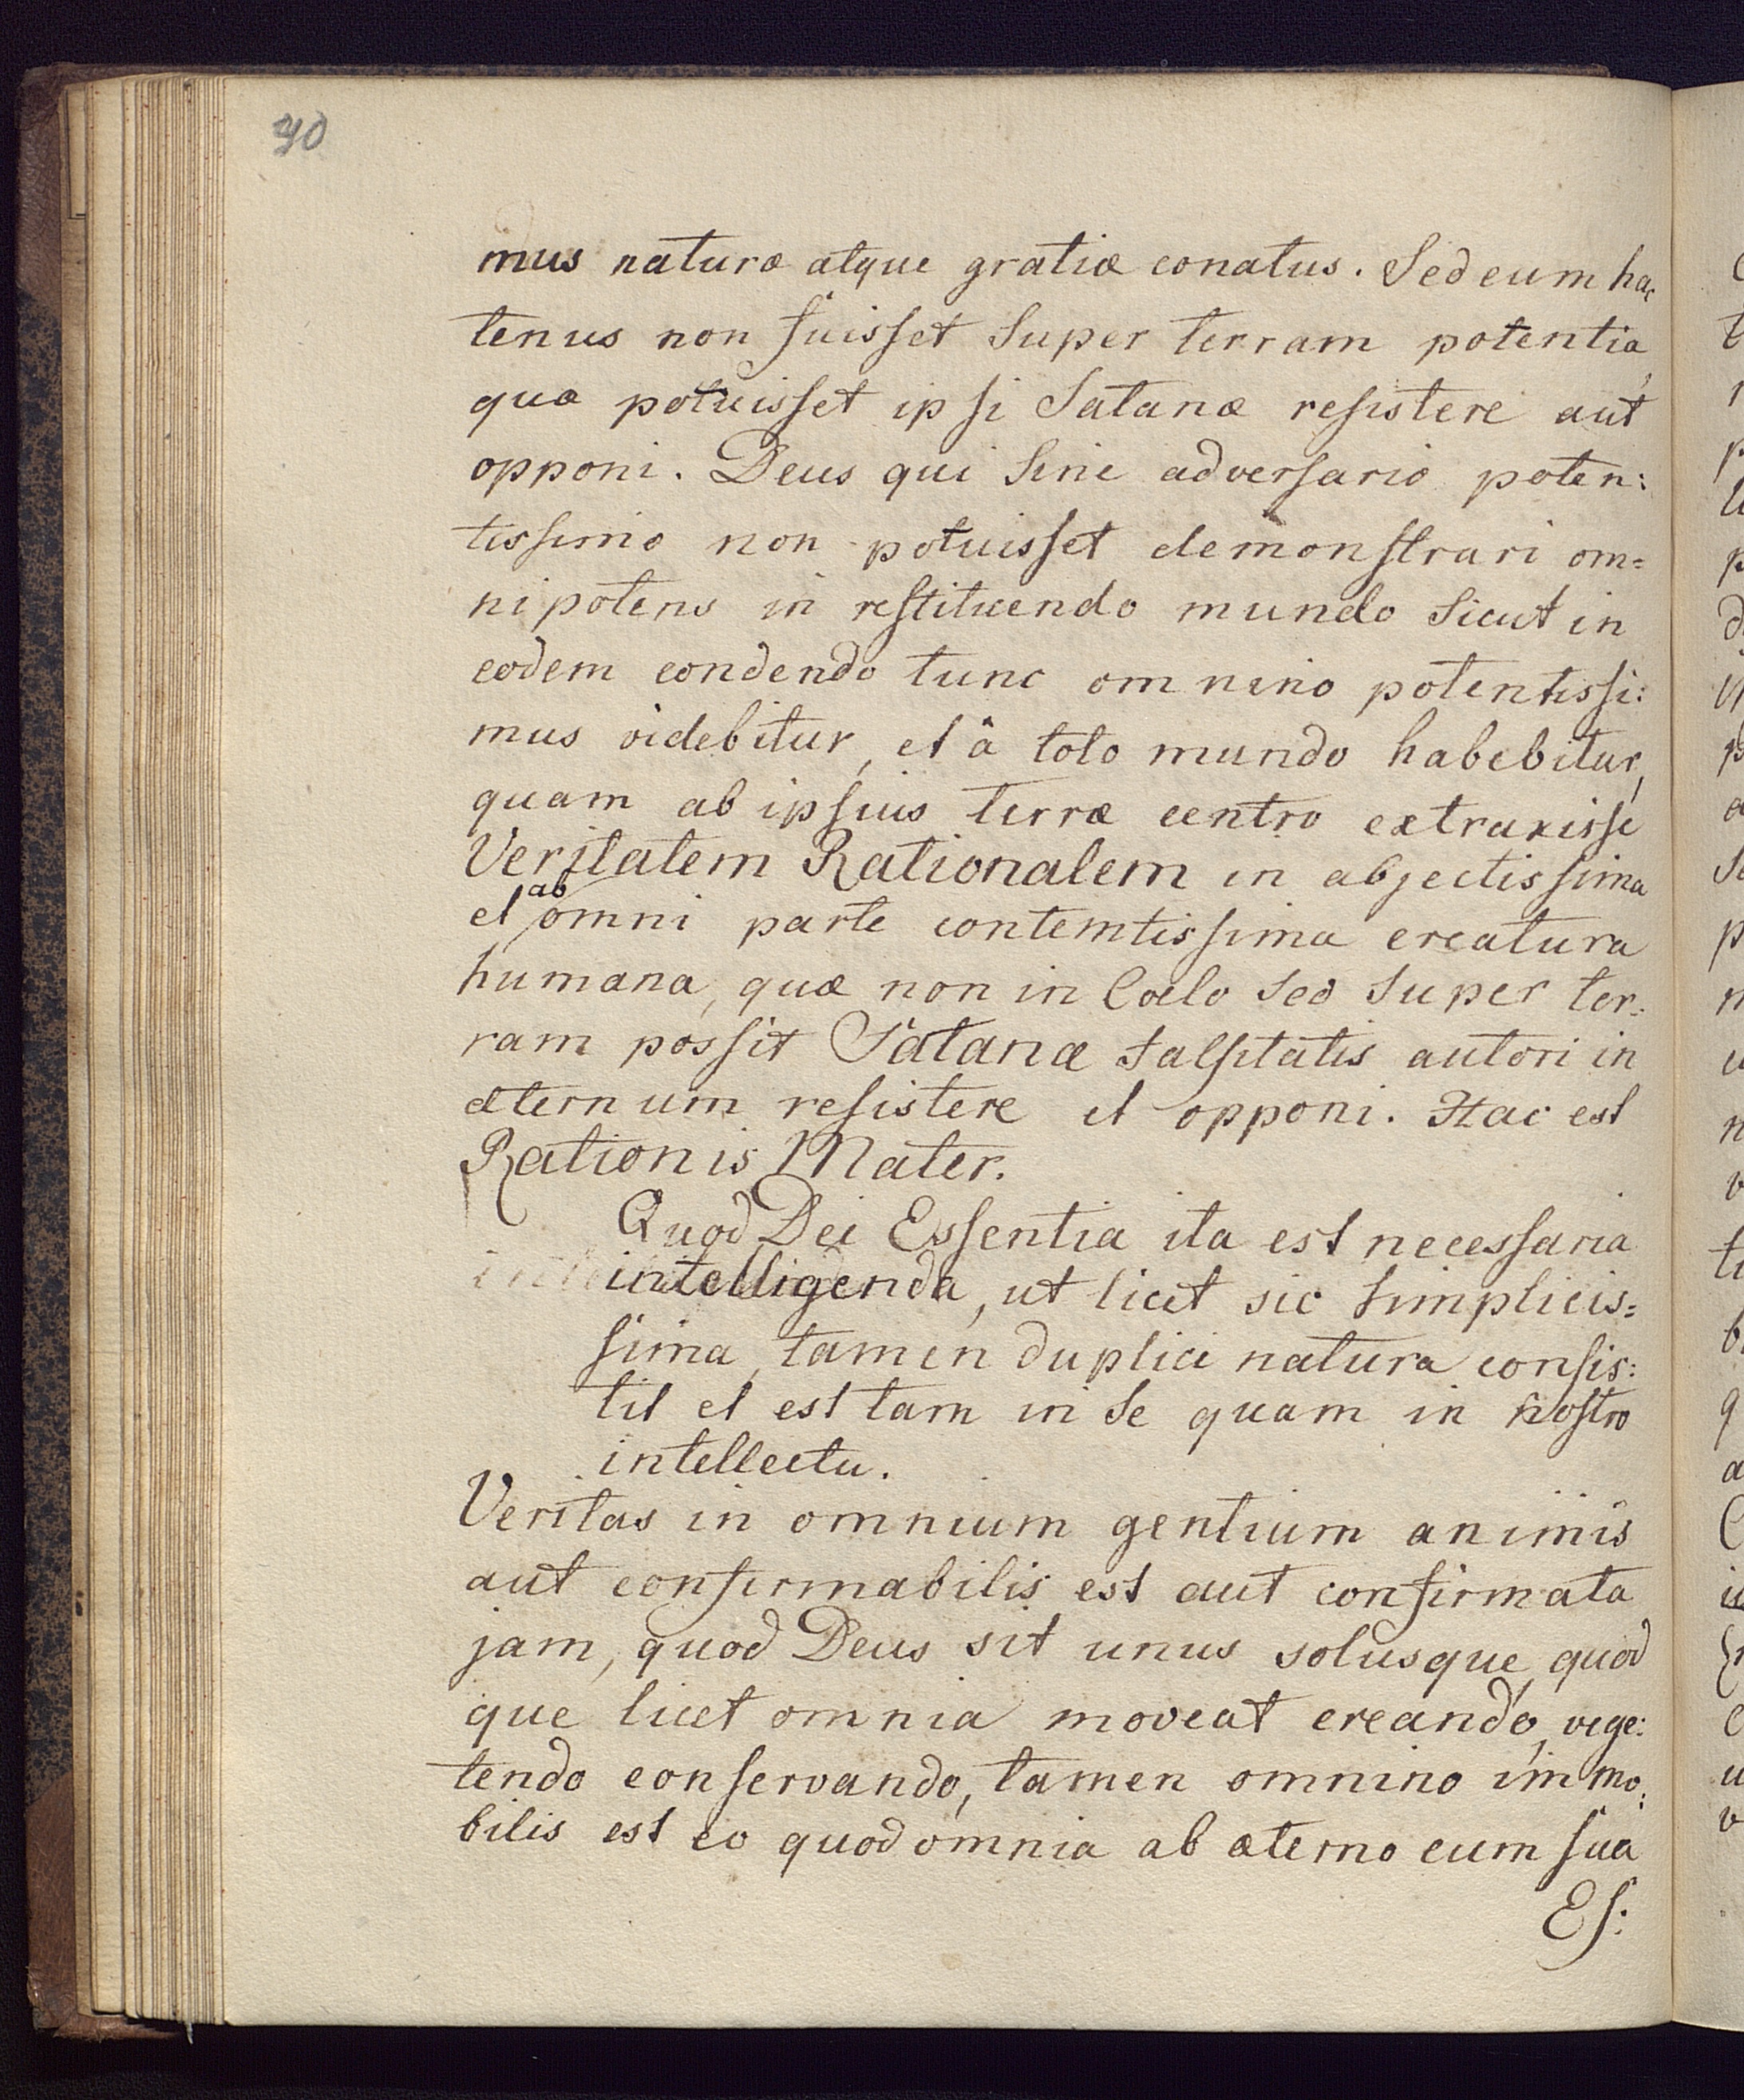 40
mus naturæ atque gratiæ conatus. Sed cum hac
tenus non fuisset super terram potentia,
quæ potuisset ipsi Satanæ resistere aut
opponi. Deus qui sine adversario poten:
tissimo non potuisset demonstrari om=
nipotens in restituendo mundo sicut in
eodem condendo tunc omnino potentissi:
mus videbitur, et â toto mundo habebitur,
quam ab ipsius terræ centro extraxisse
Veritatem Rationalem in abjectissima
et ab omni parte contemtissima creatura
humana, quæ non in Coelo sed super ter:
ram possit Satanæ falsitatis autori in
æternum resistere et opponi. Hæc est
Rationis Mater.
Quod Dei Essentia ita est necessaria
intelligenda, ut licet sic simplicis=
sima, tamen duplici natura consis:
tit et est tam in se quam in nostro
intellectu.
Veritas in omnium gentium animis
aut confirmabilis est aut confirmata
jam, quod Deus sit unus solusque, quod
que licet omnia moveat creando, vege:
tendo conservando, tamen omnino immo:
bilis est eo quod omnia ab æterno cum sua
Es: